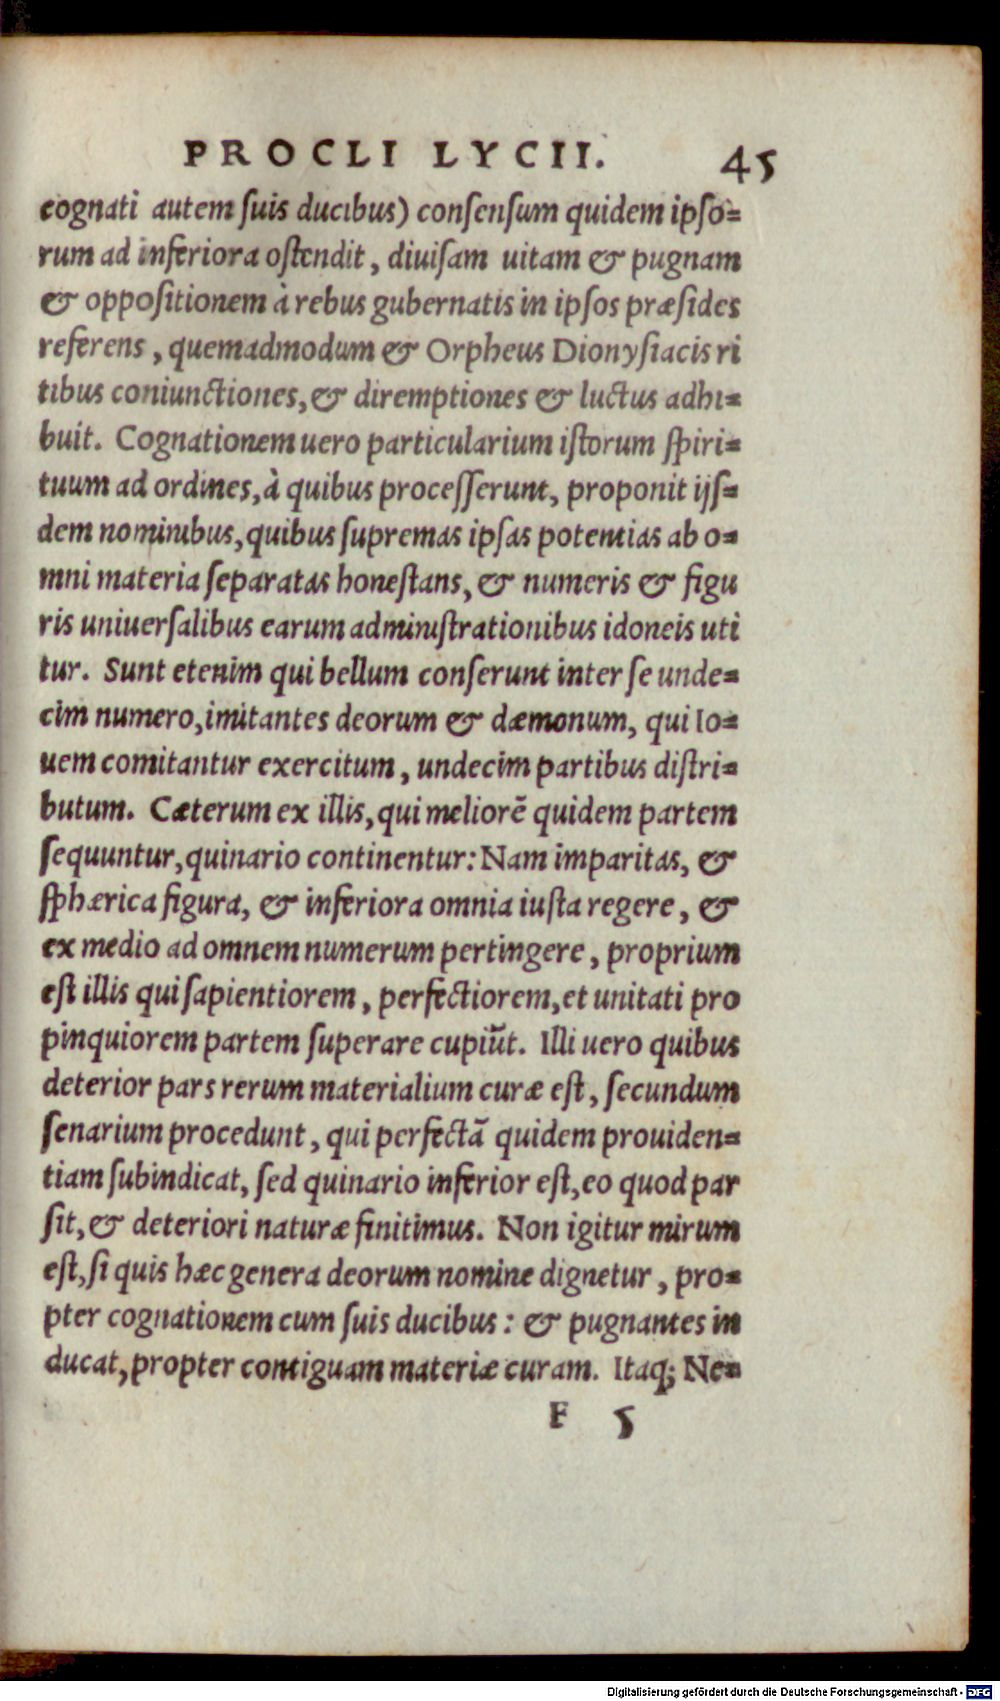 PROCLI LYCII. 45
cognati autem suis ducibus) consensum quidem ipso=
rum ad inferiora ostendit, diuisam uitam & pugnam
& oppositionem à rebus gubernatis in ipsos præsides
referens, quemadmodum & Orpheus Dionysiacis ri
tibus coniunctiones, & diremptiones & luctus adhi=
buit. Cognationem uero particularium istorum spiri=
tuum ad ordines, à quibus processerunt, proponit ijs=
dem nominibus, quibus supremas ipsas potentias ab o=
mni materia separatas honestans, & numeris & figu
ris uniuersalibus earum administrationibus idoneis uti
tur. Sunt etenim qui bellum conserunt inter se unde=
cim numero, imitantes deorum & dæmonum, qui Io=
uem comitantur exercitum, undecim partibus distri=
butum. Cæterum ex illis, qui meliorē quidem partem
sequuntur, quinario continentur: Nam imparitas, &
sphærica figura, & inferiora omnia iusta regere, &
ex medio ad omnem numerum pertingere, proprium
est illis qui sapientiorem, perfectiorem, et unitati pro
pinquiorem partem superare cupiūt. Illi uero quibus
deterior pars rerum materialium curæ est, secundum
senarium procedunt, qui perfectā quidem prouiden=
tiam subindicat, sed quinario inferior est, eo quod par
sit, & deteriori naturæ finitimus. Non igitur mirum
est, si quis hæc genera deorum nomine dignetur, pro=
pter cognationem cum suis ducibus: & pugnantes in
ducat, propter contiguam materiæ curam. Itaq; Ne=
F 5
Digitalisierung gefördert durch die Deutsche Forschungsgemeinschaft - DFG